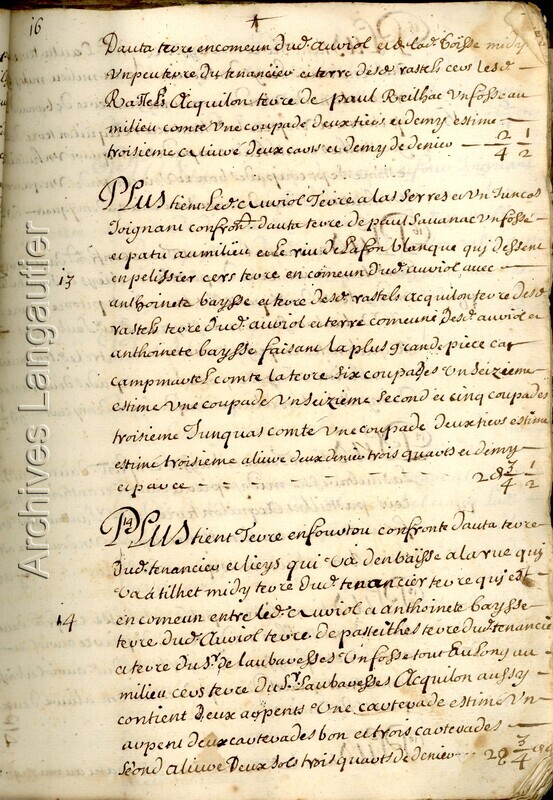 16
Dauta terre en comeun dud. auriol et de lad. boisse midy
un peu terre du tenancier et terre desd. rastels cers lesd.
Rastels Acquilon terre de paul Reilhac un fosse au
milieu comte une coupade deux tiers et demy estime
troisieme alivré deux carts et demy de denier — 2/4 1/2
PLus tient led. Auriol Terre a las serres et un Juncas
Joignant confron. dauta terre de paul savanac un fosse
et patu au milieu et le riu de lafon blanque qui dessent
13
en pelissier cers terre en comeun dud. auriol avec
anthoinete baysse et terre desd. rastels acquilon terre desd.
rastels terre dud. auriol et terre comeune desd. auriol et
anthoinete baysse faisant la plus grande piece car
campmartel comte la terre six coupades un seizieme
estime une coupade un seizieme second et cinq coupades
troisieme Junquas comte une coupade deux tiers estime
estime troisieme alivre deux denier trois quarts et demy
et parce — 2d 3/4 1/2
14
PLus tient Terre en confronte dauta terre
dud. tenancier et lieys qui va denbaisse a la rue qui
va a tilhet midy terre dud. tenancier terre qui est
14
en comeun entre led. Auriol et anthoinete baysse
terre dud. Auriol terre de terre dud. tenancie
et terre du Sr. de laubaresses un fosse tout au long au
milieu cers terre du Sr. Laubaresses Acquilon aussy
contient deux arpents une carterade estime un
arpent deux carterades bon et trois carterades
second alivre deux sols trois quarts de denier — 2s 3/4
Archives Langautier